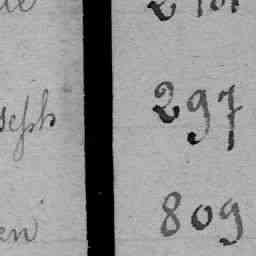 seph 297
en 809